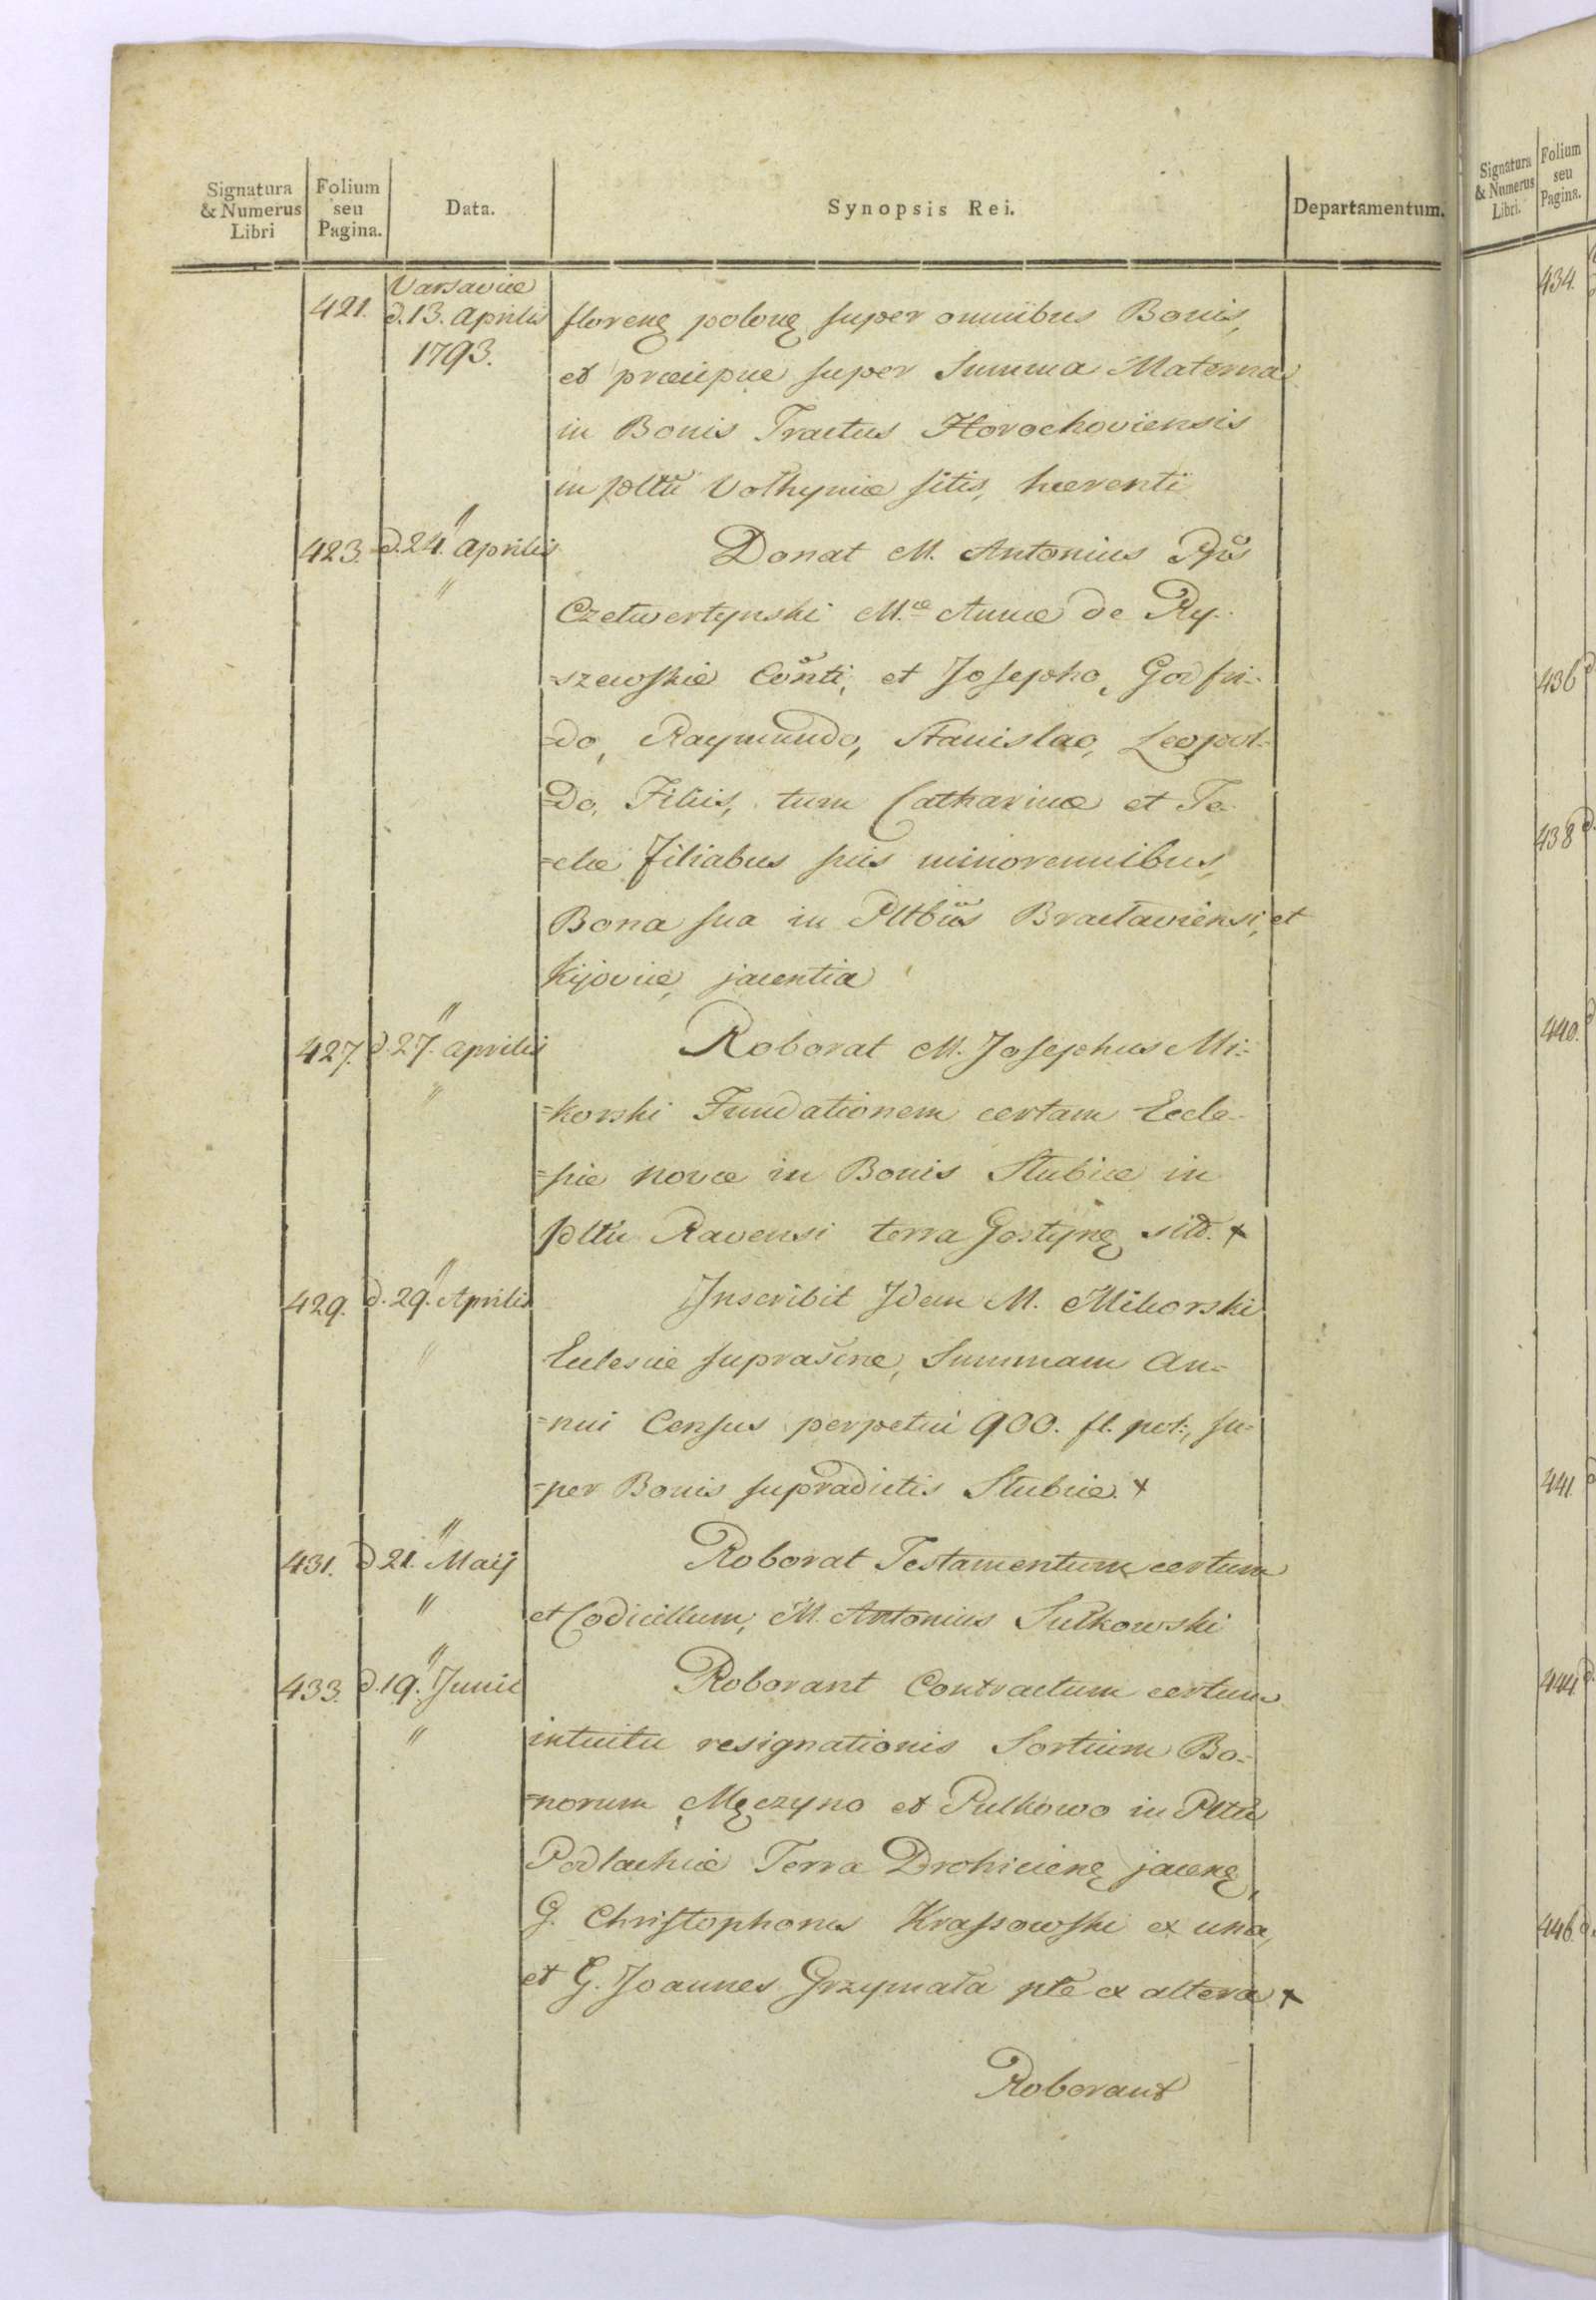 Signatura & Numerus Libri
Folium seu Pagina.
Data.
Synopsis Rei.
Departamentum.
421. Varsaviæ d. 13. Aprilis 1793.
florenę polonę super omnibus Bonis,
et præcipue super Summa Materna
in Bonis Tractus Horochoviensis
in Pltũ Volhyniæ sitis, hærenti
423. " d. 24. Aprilis "
Donat M. Antonius Pps
Czetwertynski M.æ Annæ de Ry-
=szewskie Coñti, et Josepho, Godfri-
=do, Raymundo, Stanislao, Leopol-
=do, Filiis, tum Catharinæ et Te-
=clæ Filiabus suis minorennibus,
Bona sua in Pltbũs Braclaviensi, et
Kijoviæ, jacentia
427. " d. 27. Aprilis "
Roborat M. Josephus Mi-
=korski Fundationem certam Eccle-
=siæ novæ in Bonis Slubice in
Pltũ Ravensi terra Gostynę sit. x
429. " d. 29. Aprilis "
Inscribit Idem M. Mikorski
Ecclesiæ supraščnæ, Summam An-
=nui Census perpetui 900. fl. pol:, su-
=per Bonis supradictis Slubice. x
431. " d. 21. Maij "
Roborat Testamentum certum
et Codicillum, M. Antonius Sulkowski
433. " d. 19. Junii "
Roborant Contractum certum
intuitu resignationis Sortium Bo-
=norum Męczyno et Pulkowo in Pltũ
Podlachiæ Terra Drohicienę jacenę,
G. Christophorus Krassowski ex una,
et G. Joannes Grzymała pte ex altera x
Roborant
Signatura & Numerus Libri.
Folium seu Pagina.
434.
436
438
440.
441
444.
446.